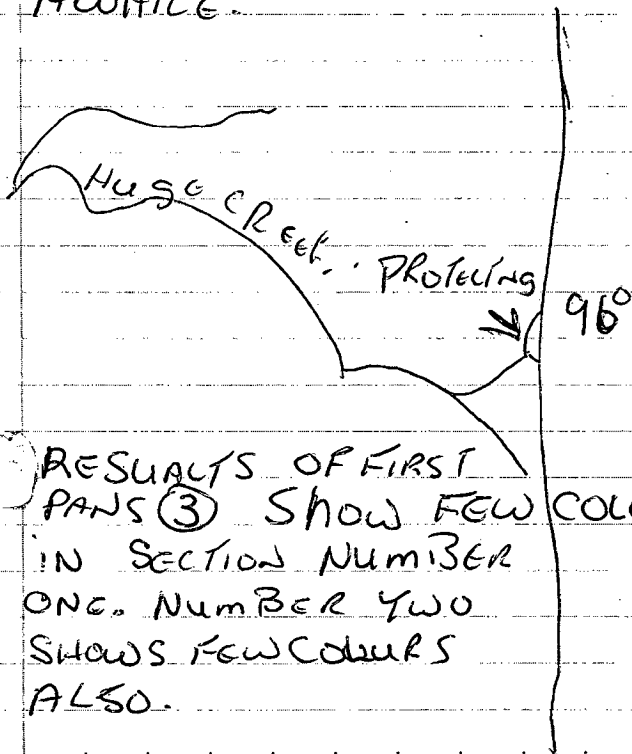 AWHILE.
HUGE CREEK. PROTECTING
96°
RESUALTS OF FIRST
PANS ③ SHOW FEW COLO
IN SECTION NUMBER
ONE. NUMBER TWO
SHOWS FEW COLOURS
ALSO.